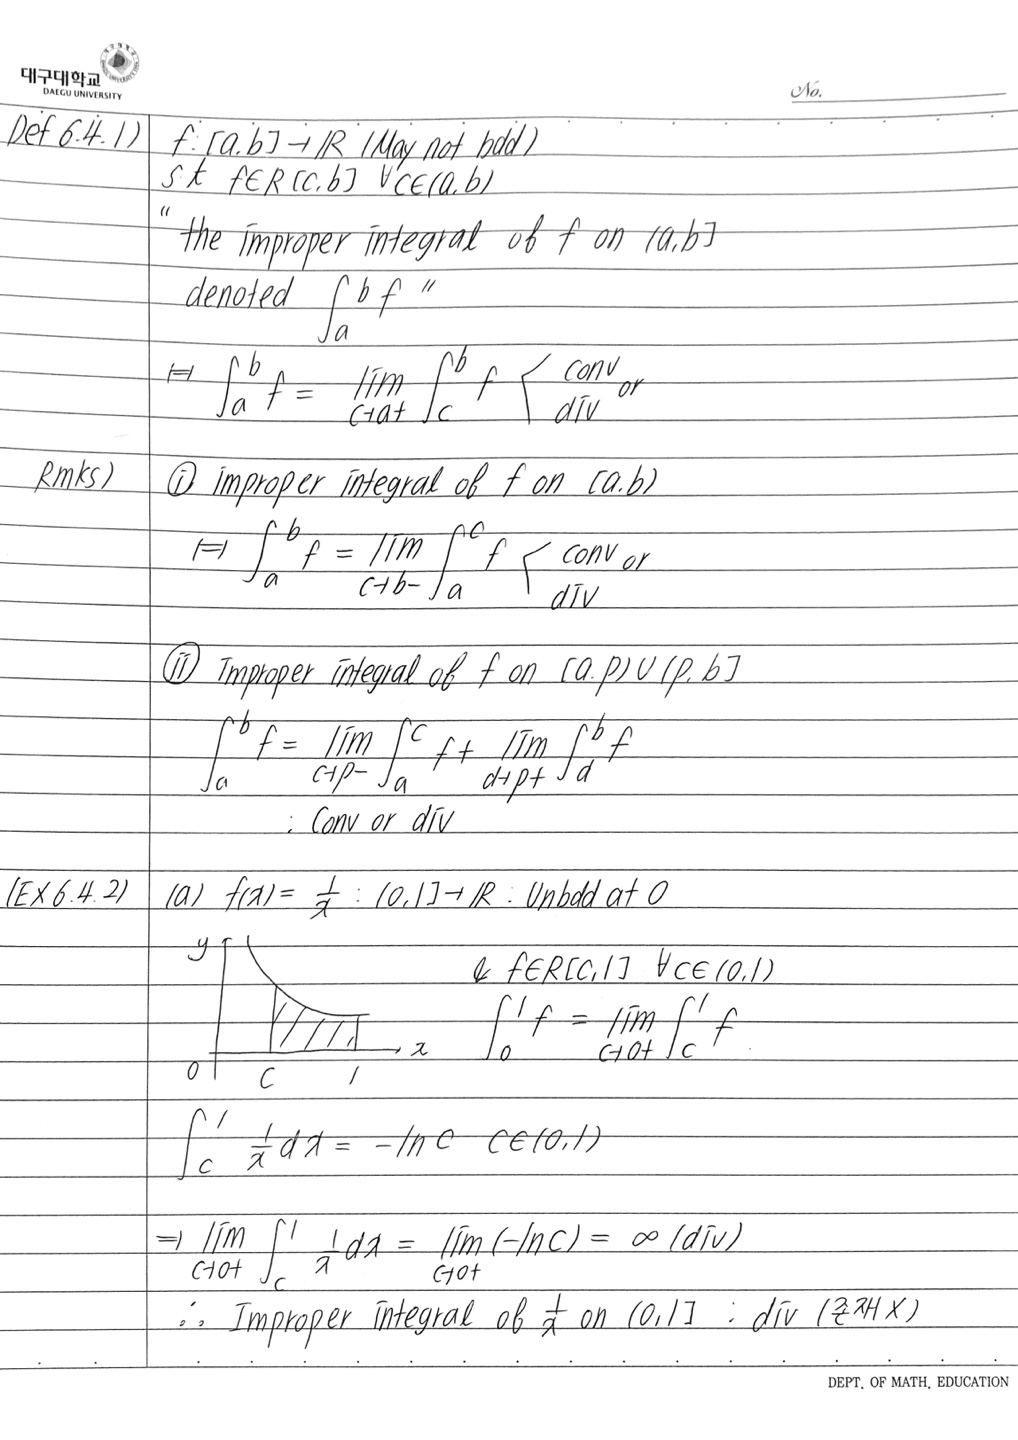 대구대학교
DAEGU UNIVERSITY
No.
Def 6.4.1) f: [a,b] → ℝ (May not bdd)
s.t f∈R[c,b] ∀c∈(a,b)
"the improper integral of f on (a,b]
denoted ∫_a^b f"
⊨ ∫_a^b f = lim_{c→a+} ∫_c^b f < conv or div
Rmks) ⓘ improper integral of f on [a.b)
⊨ ∫_a^b f = lim_{c→b-} ∫_a^c f < conv or div
ⅱ Improper integral of f on [a.p)∪(p,b]
∫_a^b f = lim_{c→p-} ∫_a^c f + lim_{d→p+} ∫_d^b f
: Conv or div
(EX 6.4.2) (a) f(x) = 1/x : (0,1] → ℝ : Unbdd at 0
y
& f∈R[c,1] ∀c∈(0,1)
∫_0^1 f = lim_{c→0+} ∫_c^1 f
x
0 C 1
∫_c^1 1/x dx = -ln c c∈(0,1)
⇒ lim_{c→0+} ∫_c^1 1/x dx = lim_{c→0+} (-ln c) = ∞ (div)
∴ Improper integral of 1/x on (0,1] : div (존재 X)
DEPT. OF MATH. EDUCATION